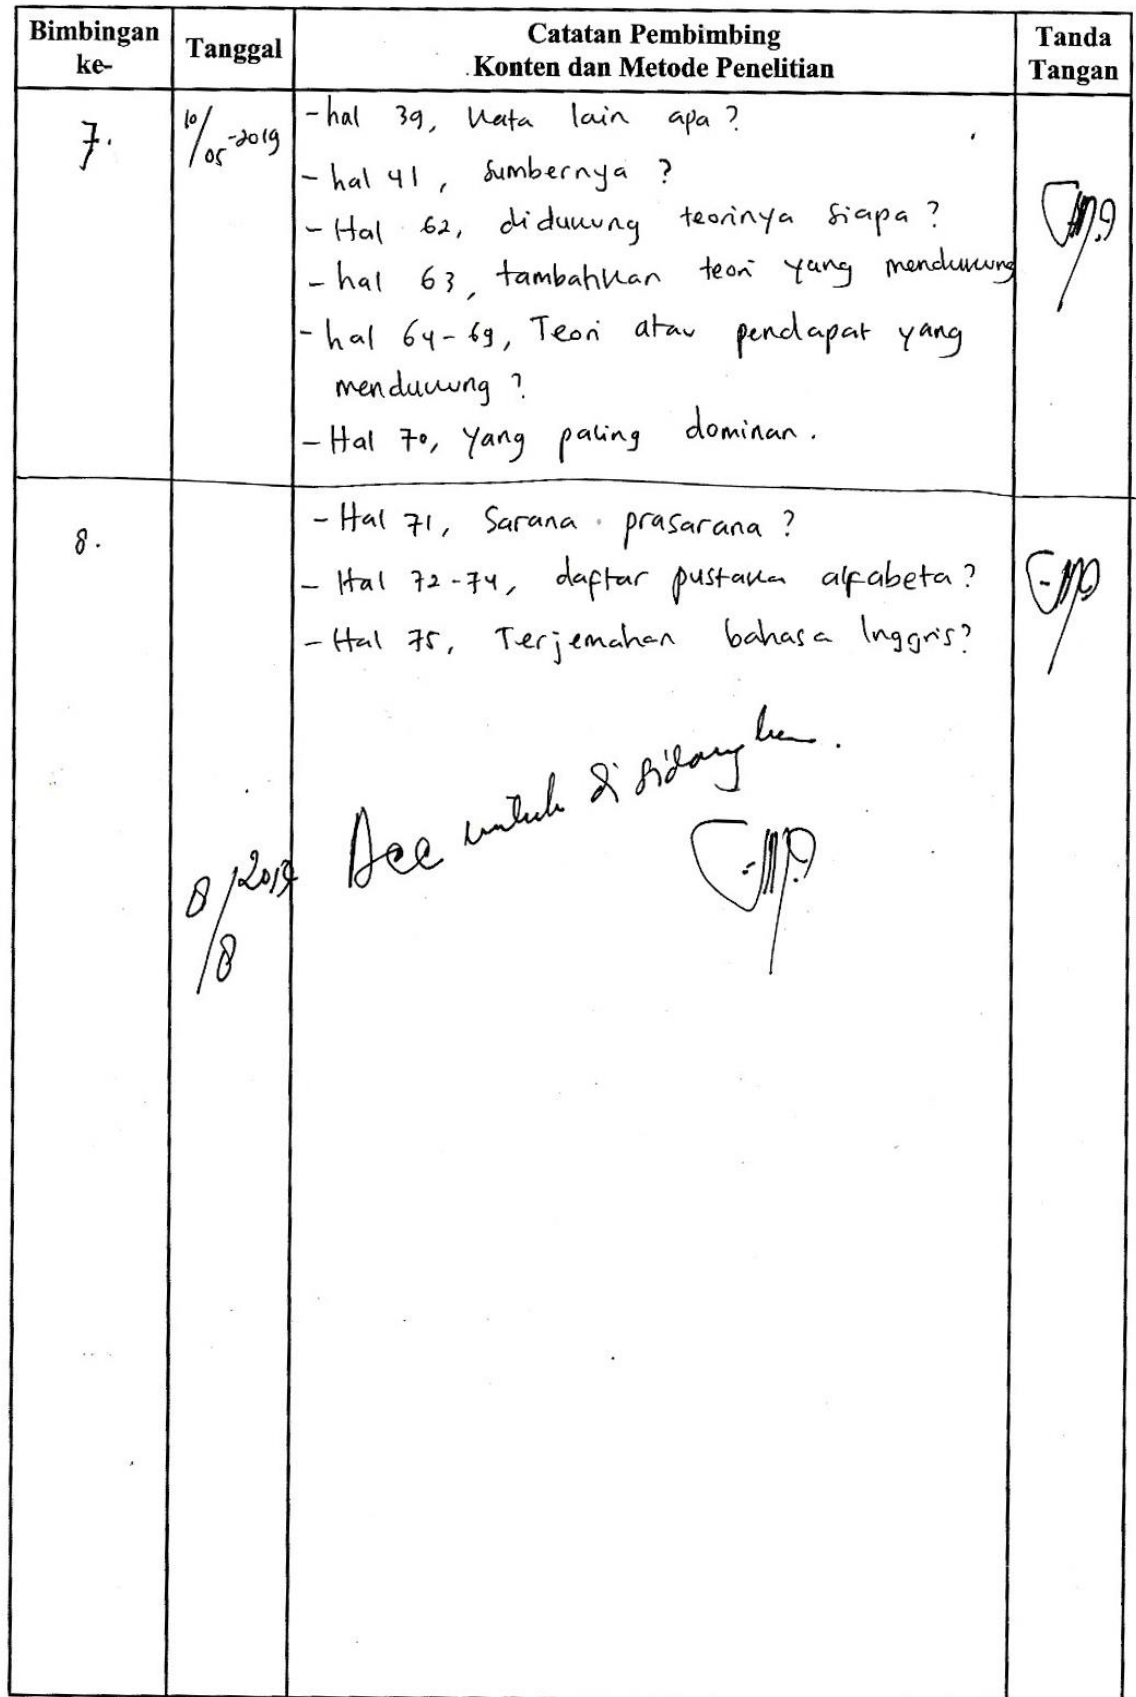 Bimbingan ke-
Tanggal
Catatan Pembimbing
Konten dan Metode Penelitian
Tanda Tangan
7.
10/05-2019
- hal 39, kata lain apa?
- hal 41, sumbernya?
- Hal 62, didukung teorinya siapa?
- hal 63, tambahkan teori yang mendukung
- hal 64-69, Teori atau pendapat yang
mendukung?
- Hal 70, yang paling dominan.
8.
- Hal 71, Sarana prasarana?
- Hal 72-74, daftar pustaka alfabeta?
- Hal 75, Terjemahan bahasa Inggris?
8/8 2019
Acc untuk di sidangkan.